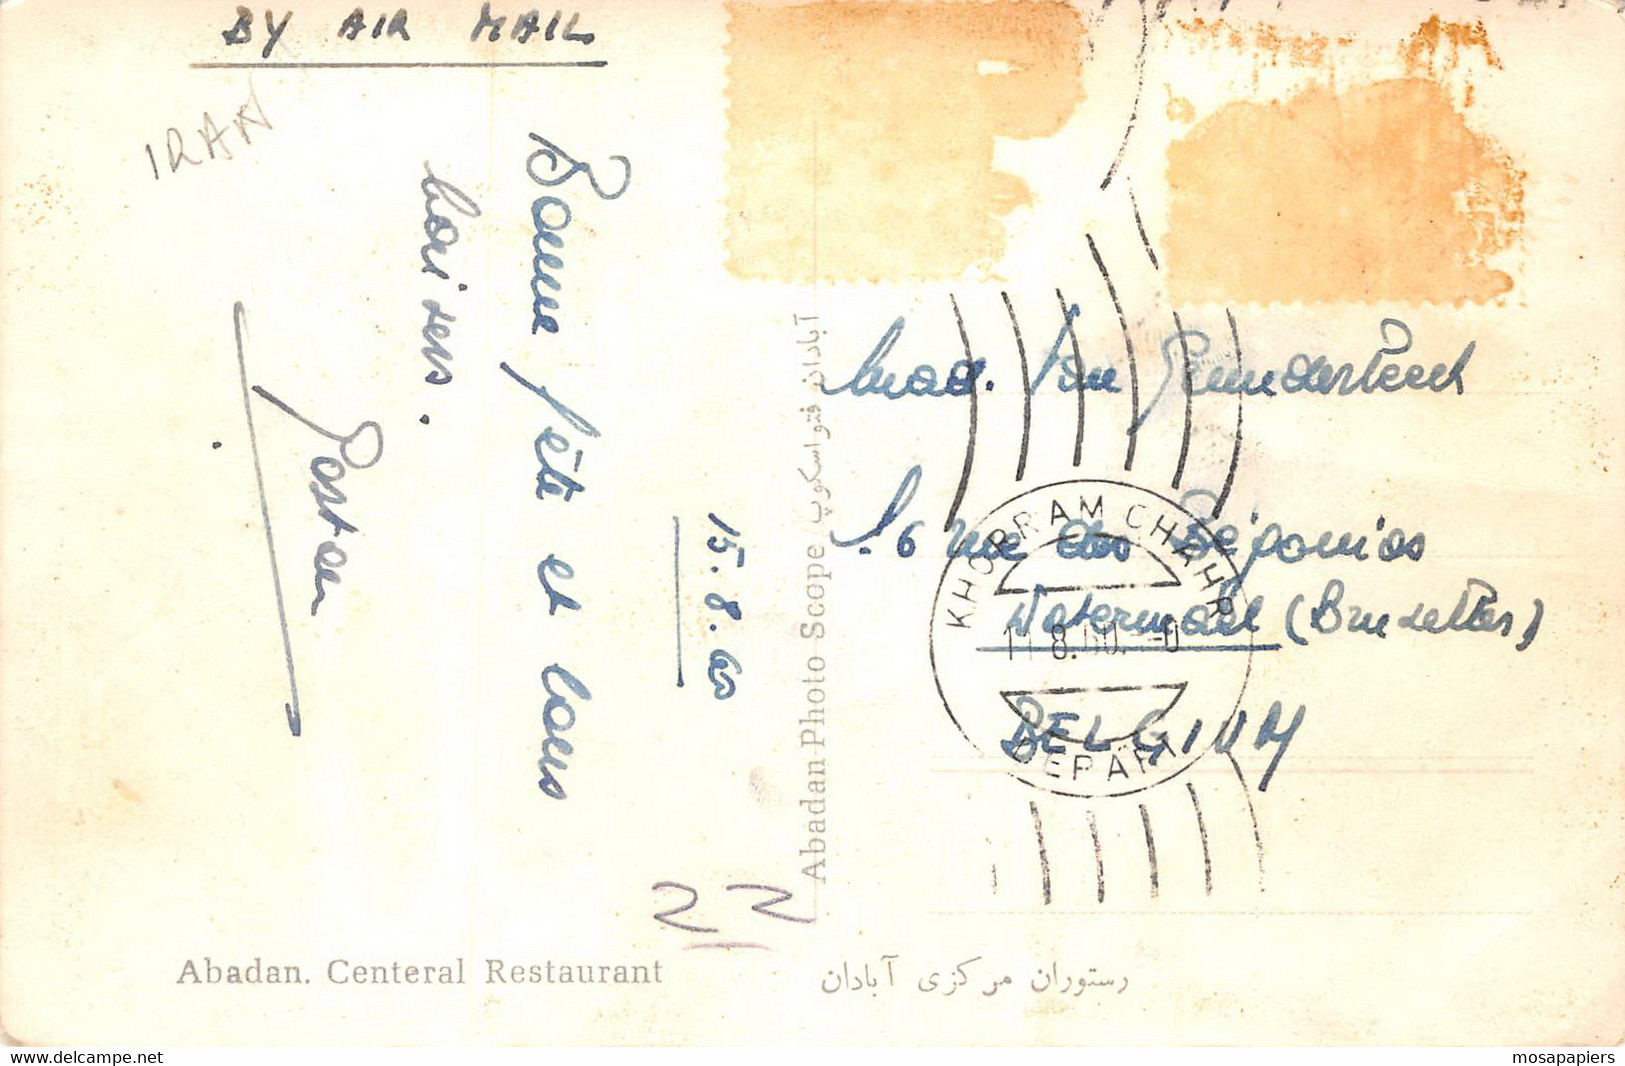 BY AIR MAIL
IRAN
Bonne fête et bons
baisers.
Gaston
15.8.60
Abadan Photo Scope آبادان فتواسکوپ
Mad. Van
16 rue des Bégonias
Watermael (Bruxelles)
BELGIUM
KHORRAM CHAHR
DEPART
Abadan. Centeral Restaurant
رستوران مرکزی آبادان
www.delcampe.net
mosapapiers